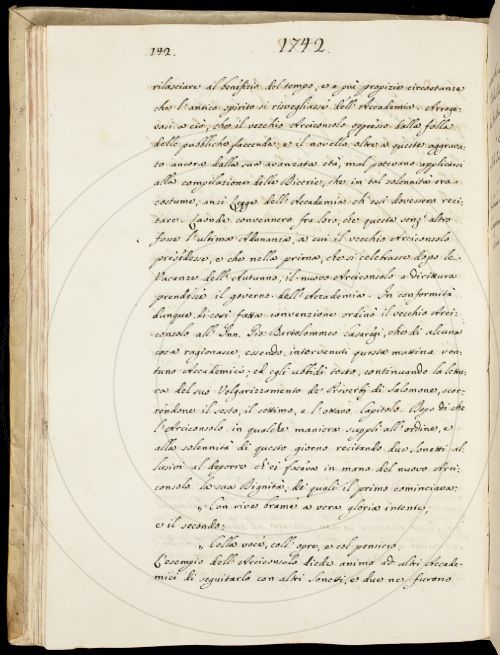 142.
1742.
rilasciare al benefizio del tempo, e a più propizie circostanze
che l'antico spirito si risvegliasse dell'Accademia. Arroge-
vasi a ciò, che il vecchio Arciconsolo oppresso dalla folla
delle pubbliche faccende, e il novello oltre a queste aggrava-
to ancora dalla sua avanzata età, mal potevano applicarsi
alla compilazione delle Dicerie, che in tal solennità era
costume, anzi Legge dell'Accademia ch'essi dovessero reci-
tare. Laonde convennero fra loro, che questa senz'altro
fosse l'ultima Adunanza, a cui il vecchio Arciconsolo
presedesse, e che nella prima, che si celebrasse dopo le
Vacanze dell'Autunno, il nuovo Arciconsolo a dirittura
prendesse il governo dell'Accademia. In conformità
dunque di così fatta convenzione ordinò il vecchio Arci-
consolo all'Inn. Gio: Bartolommeo Casaregi, che di alcuna
cosa ragionasse, essendo intervenuti questa mattina ven-
tuno Accademici; ed egli ubbidì tosto, continuando la lettu-
ra del suo Volgarizzamento de' Proverbj di Salomone, scor-
rendone il sesto, il settimo, e l'ottavo Capitolo. Dopo di che
l'Arciconsolo in qualche maniera supplì all'ordine, e
alla solennità di questo giorno recitando due Sonetti al-
lusivi al deporre ch'ei faceva in mano del nuovo Arci-
consolo la sua Dignità, de' quali il primo cominciava:
„ Con vive brame a vera gloria intente,
e il secondo:
„ Colla voce, coll'opre, e col pensiero.
L'esempio dell'Arciconsolo diede animo ad altri Accade-
mici di seguitarlo con altri Sonetti, e due ne furono